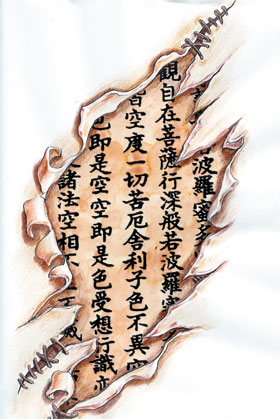 波羅蜜多
觀自在菩薩行深般若波羅蜜
皆空度一切苦厄舍利子色不異空
色即是空空即是色受想行識亦
諸法空相不